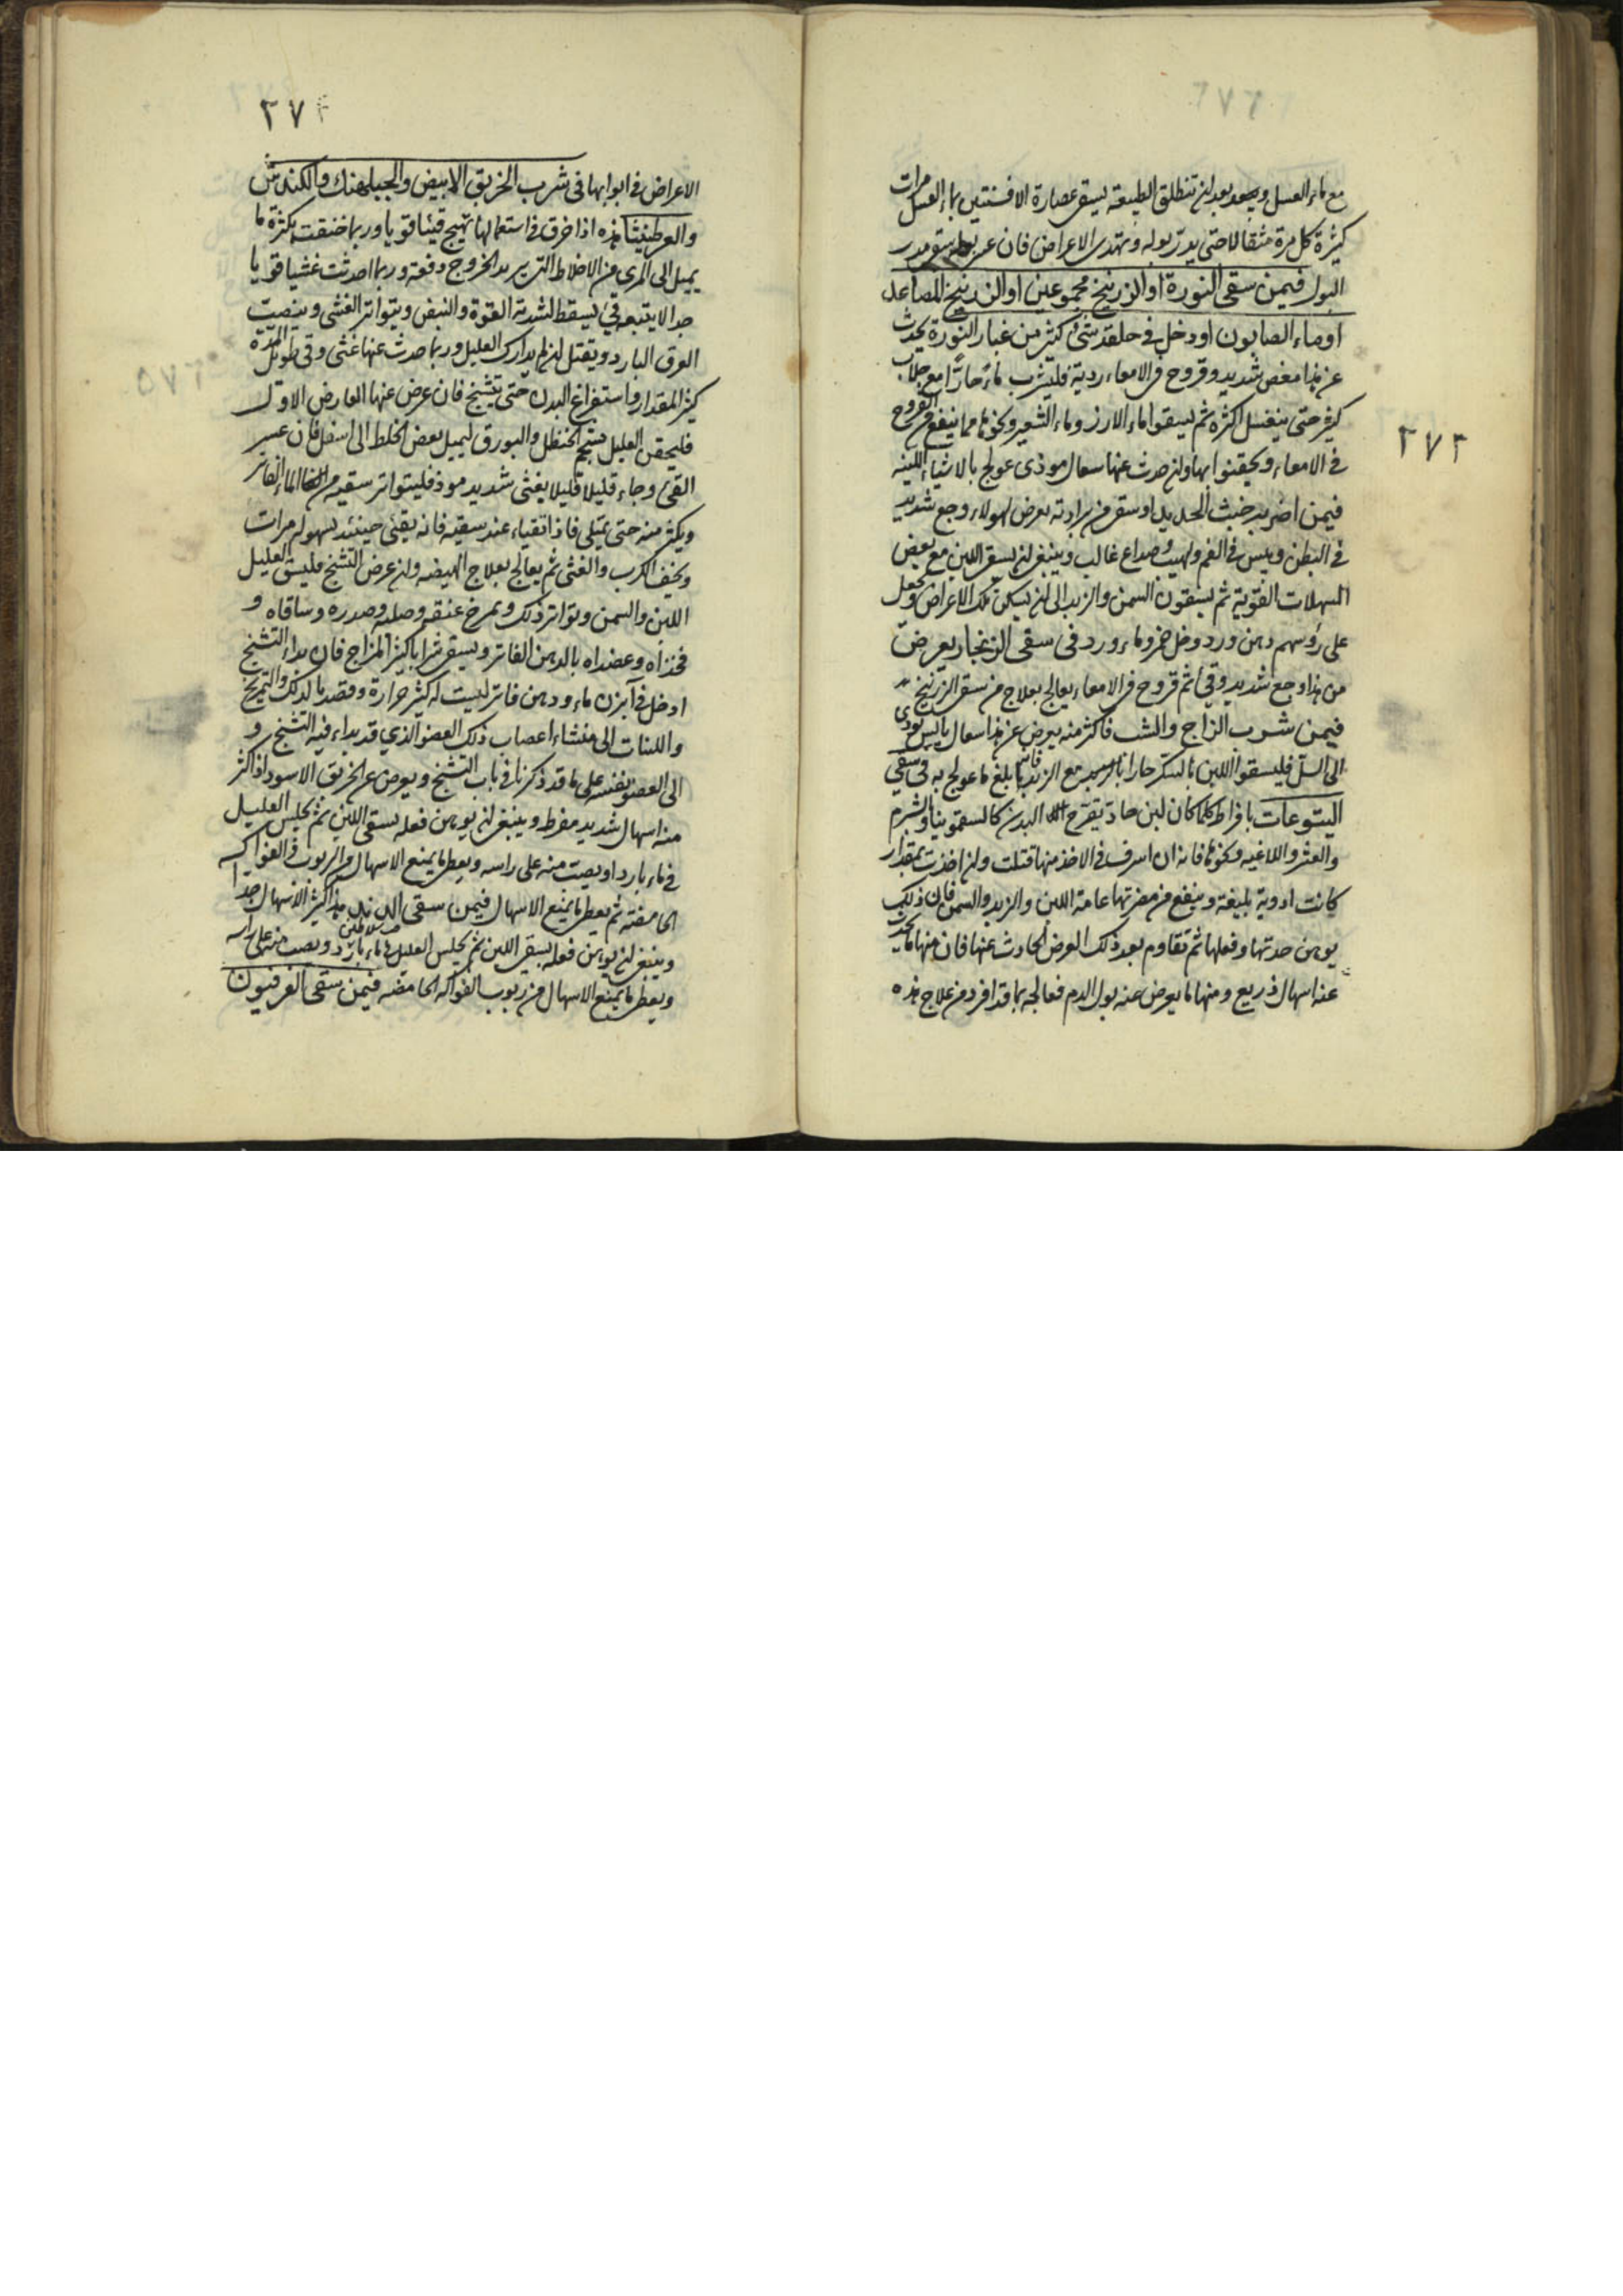 مع ماء العسل وبعد لن تنطلق الطبيعة يسقى عصارة الافسنتين بماء العسل مرات
كثيرة كل مرة مثقالا حتى يدر بوله وتهدى الاعراض فان عسر بوله سقى مدر
البول فيمن سقى النورة او الزرنيخ مجموعين او الزرنيخ المصاعد
او ماء الصابون او دخل في حلقه شئ كثير من غبار النورة يحدث
عن هذا مغص شديد وقروح في الامعاء ردية فليشرب ماء حارا مع جلاب
كثير حتى ينغسل اكثره ثم يسقوا ماء الارز وماء الشعير ونحوها مما ينفع من القروح
في الامعاء ويحقنوا بها ولن حدث عنها سعال موذى عولج بالاشياء اللينه
فيمن اضر به خبث الحديد او سقى من برادته يعرض لهولاء وجع شديد
في البطن ويبس في الفم ولهيب وصداع غالب وينبغى لن يسقى اللبن مع بعض
المسهلات القوية ثم يسقون السمن والزبد الى لن يسكن تلك الاعراض ويجعل
على رؤسهم دهن ورد وخل خمر وماء ورد في سقى الزنجار يعرض
من هذا وجع شديد وقئ ثم قروح في الامعاء يعالج بعلاج من سقى الزرنيخ
فيمن شرب الزاج والشب فاكثر منه يعرض عن هذا سعال يابس يودى
الى السل فليسقوا اللبن بالسكر حارا مع الزبد فانه بلغ ما عولج به في سقى
اليتوعات بافراط كلما كان لبن حاد يقرح البدن كالسقمونيا والشبرم
والعشر واللاغيه ونحوها فانه ان اسرف في الاخذ منها قتلت ولن اخذت بمقدار
كانت ادوية بليغة وينفع من مضرتها عامة اللبن والزبد والسمن فان ذلك
يوهن حدتها وفعلها ثم تقاوم بعد ذلك العرض الحادث عنها فان منها ما يحدث
عنه اسهال ذريع ومنها ما يعرض عنه بول الدم فعالجه بما قد افرد من علاج هذه
٢٧٣
٢٧
الاعراض في ابوابها في شرب الخربق الابيض والجبلهنك والكندش
والعرطنيثا هذه اذا خرق في استعمالها تهيج قيئا قويا وربما خنقت بكثرة ما
يميل الى المرى من الاخلاط التى يريد الخروج دفعة وربما احدثت غشيا قويا
جدا لا يتبعه قئ يسقط لشدته القوة والنبض ويتواتر الغشى وينصب
العرق البارد ويقتل لن لم يدارك العليل وربما حدث عنها غثى وقى طويل المدة
كثير المقدار واستفراغ البدن حتى يتشنج فان عرض عنها العارض الاول
فليحقن العليل بشحم الحنظل والبورق ليميل بعض الخلط الى اسفل فان عسر
القئ وجاء قليلا قليلا بغثى شديد موذ فليتواتر سقيه من الماء الفاتر
ويكثر منه حتى يمتلى فاذا تقياء عند سقيه فانه يقئ حينئذ بسهوله مرات
ويخف الكرب والغثى ثم يعالج بعلاج الهيضه ولن عرض التشنج فليسق العليل
اللبن والسمن وتواتر ذلك ويمرخ عنقه وصلبه وصدره وساقاه و
فخذاه وعضداه بالدهن الفاتر ويسقى شرابا كثير المزاج فان بداء التشنج
ادخل في آبزن ماء ودهن فاتر ليست له كثير حرارة وقصد بالدلك والتمريخ
واللبنات الى منشاء اعصاب ذلك العضو الذي قد بداء فيه التشنج و
الى العضو نفسه على ما قد ذكرنا في باب التشنج ويعرض عن الخربق الاسود اذا اكثر
منه اسهال شديد مفرط وينبغى لن يوهن فعله بسقى اللبن ثم يجلس العليل
في ماء بارد او يصب منه على راسه ويعطى ما يمنع الاسهال من الربوب في الفواكه
الحامضه ثم يعطى ما يمنع الاسهال فيمن سقى الدند هذا اكثر الاسهال جدا
وينبغى لن يوهن فعله بسقى اللبن ثم يجلس العليل في ماء بارد ويصب منه على راسه
ويعطى ما يمنع الاسهال من ربوب الفواكه الحامضه فيمن سقى الفرفيون